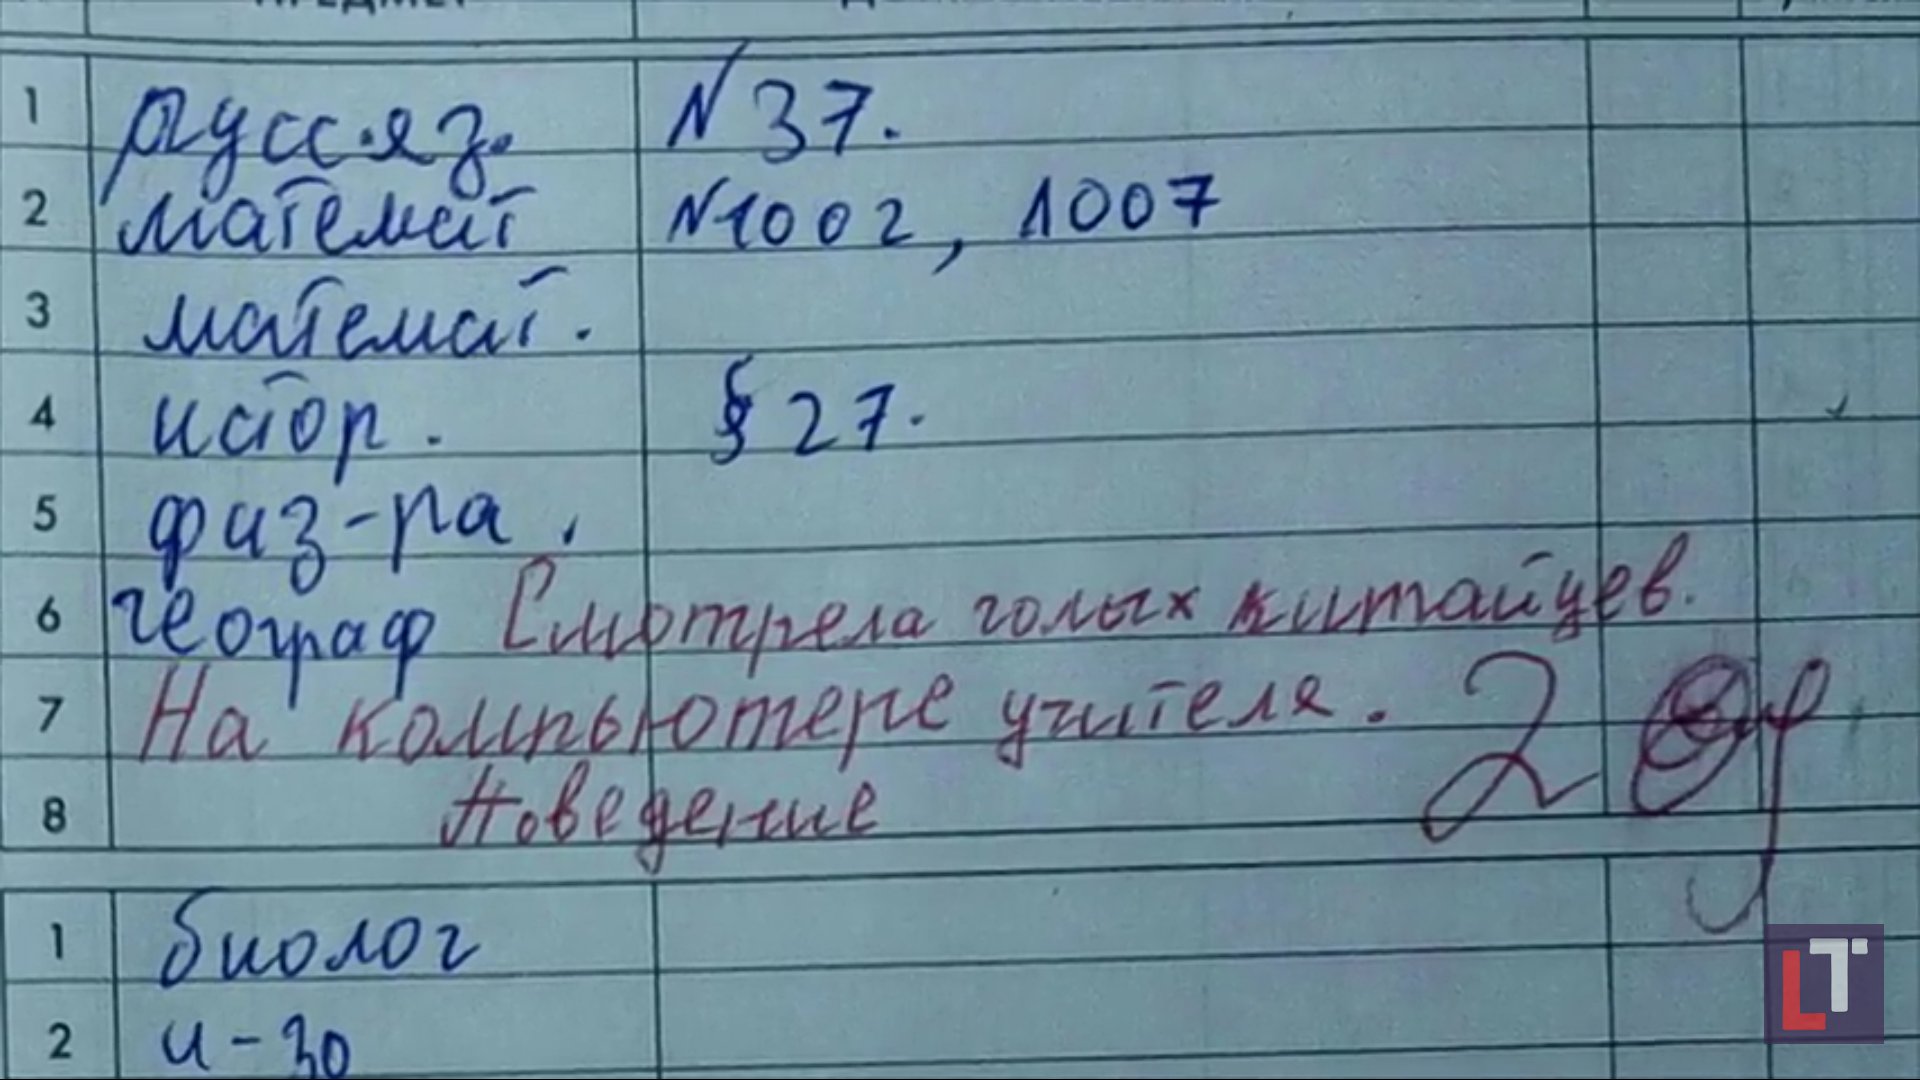 ПРЕДМЕТ
1 русс.яз. N 37.
2 математ N1002, 1007
3 математ.
4 истор. § 27.
5 физ-ра.
6 географ Смотрела голых китайцев.
7 На компьютере учителя. 2
8 Поведение
1 биолог
2 и-зо
LT